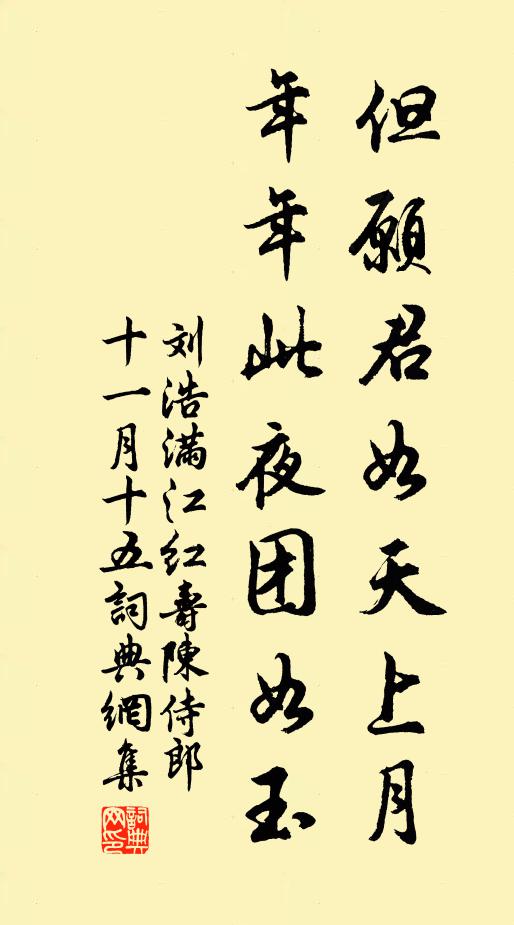 但願君如天上月
年年此夜团如玉
刘浩满江红壽陳侍郎
十一月十五詞典網集
詞典网印